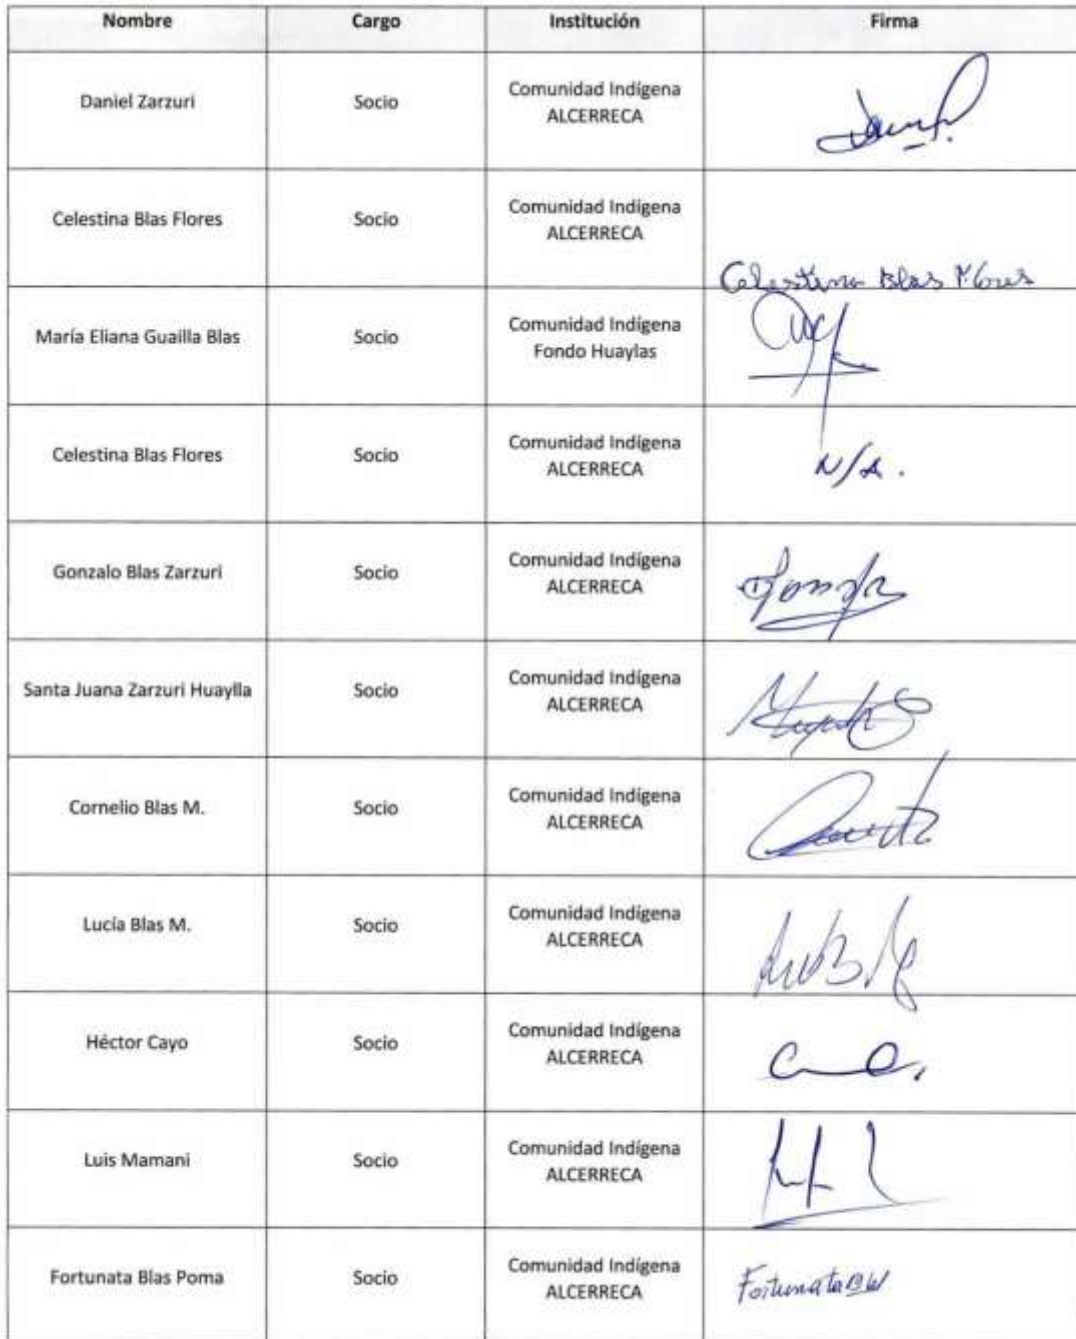 Nombre Cargo Institución Firma
Daniel Zarzuri Socio Comunidad Indígena
ALCERRECA
Celestina Blas Flores Socio Comunidad Indígena
ALCERRECA
Celestina Blas Flores
María Eliana Guailla Blas Socio Comunidad Indígena
Fondo Huaylas
Celestina Blas Flores Socio Comunidad Indígena
ALCERRECA
N/A.
Gonzalo Blas Zarzuri Socio Comunidad Indígena
ALCERRECA
Santa Juana Zarzuri Huaylla Socio Comunidad Indígena
ALCERRECA
Cornelio Blas M. Socio Comunidad Indígena
ALCERRECA
Lucía Blas M. Socio Comunidad Indígena
ALCERRECA
Héctor Cayo Socio Comunidad Indígena
ALCERRECA
Luis Mamani Socio Comunidad Indígena
ALCERRECA
Fortunata Blas Poma Socio Comunidad Indígena
ALCERRECA
Fortunata